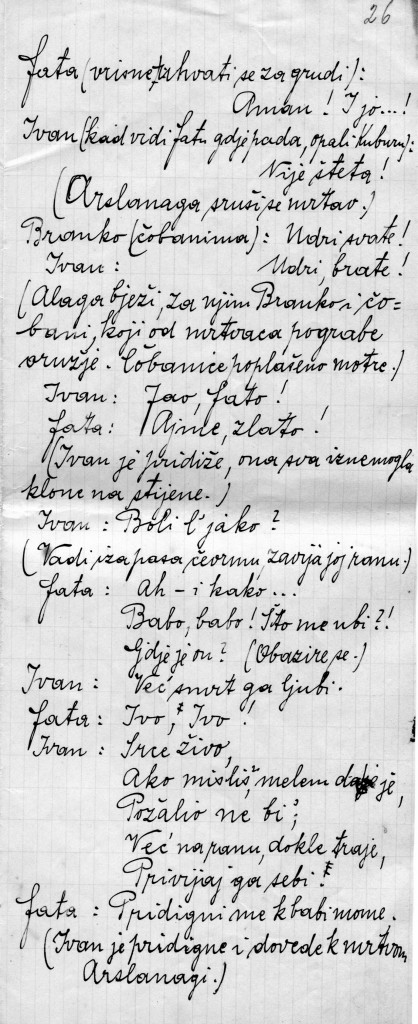 26
Fata (vrisne, uhvati se za grudi):
Aman! Ijo...!
Ivan (kad vidi Fatu gdje pada, opali kuburu):
Nije šteta!
(Arslanaga sruši se mrtav.)
Branko (čobanima): Udri svate!
Ivan: Udri, brate!
(Alaga bježi, za njim Branko i čo=
bani, koji od mrtvaca pograbe
oružje. Čobanice poplašeno motre.)
Ivan: Jao, Fato!
Fata: Ajme, zlato!
(Ivan je pridiže, ona sva iznemogla
klone na stijene.)
Ivan: Boli l' jako?
(Vadi iza pasa čevrmu, zavija joj ranu.)
Fata: Ah - i kako...
Babo, babo! Što me ubi?!
Gdje je on? (Obazire se.)
Ivan: Već smrt ga ljubi.
Fata: Ivo, Ivo!
Ivan: Srce živo,
Ako misliš, melem da je,
Požalio ne bi;
Već na ranu, dokle traje,
Privijaj ga sebi!
Fata: Pridigni me k babi mome.
(Ivan je pridigne i dovede k mrtvom
Arslanagi.)